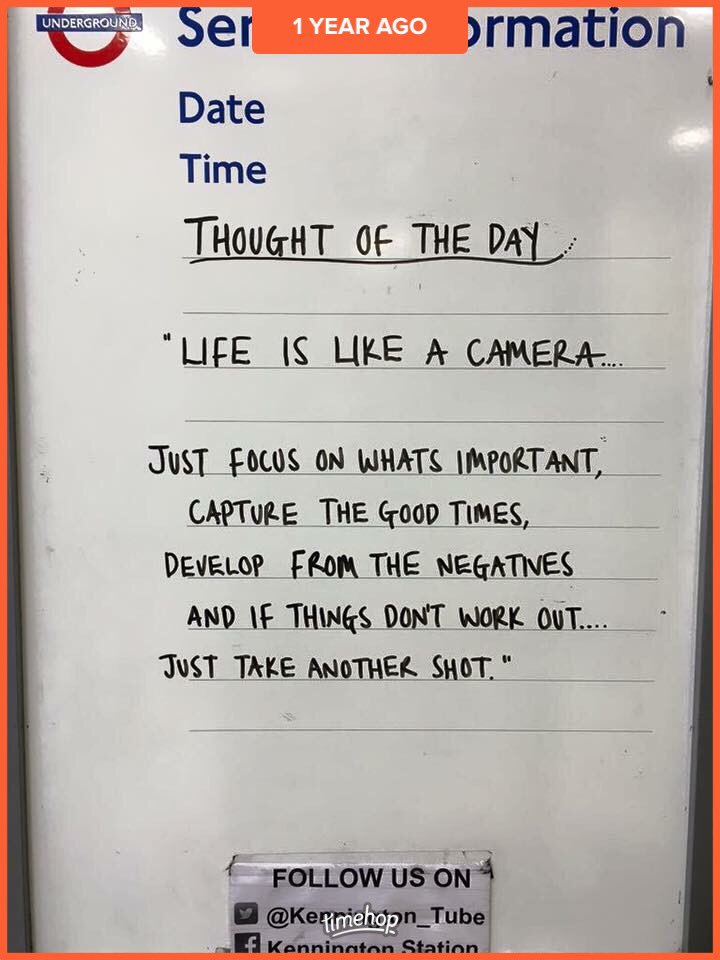 1 YEAR AGO
UNDERGROUND
Date
Time
THOUGHT OF THE DAY
"LIFE IS LIKE A CAMERA....
JUST FOCUS ON WHATS IMPORTANT,
CAPTURE THE GOOD TIMES,
DEVELOP FROM THE NEGATIVES
AND IF THINGS DON'T WORK OUT....
JUST TAKE ANOTHER SHOT."
FOLLOW US ON
timehop
Kennington Station